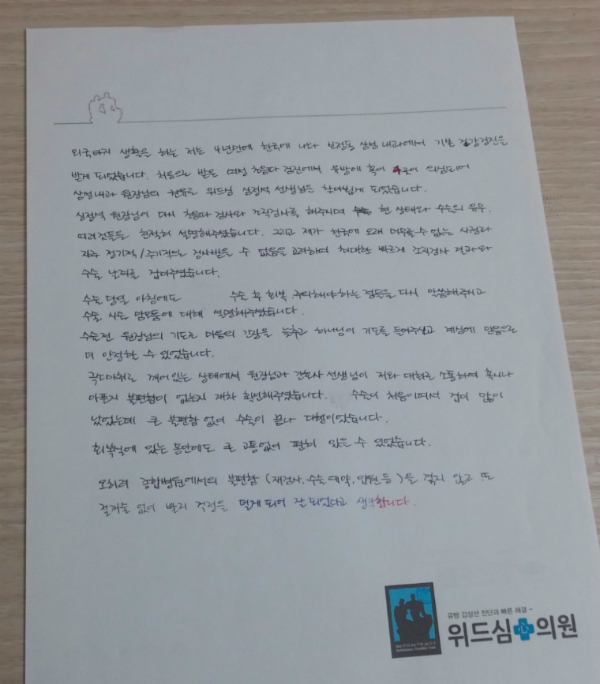 외국에서 생활을 하는 저는 4년만에 한국에 나와 삼성내과에서 기본 건강검진을
받게 되었습니다. 처음으로 받은 유방 초음파 검진에서 왼쪽에 혹이 의심되어
삼성내과 원장님의 위드심 심정석 선생님을 찾아뵙게 되었습니다.
심정석 원장님이 다시 초음파 검사와 조직검사를 해주시며 현 상태와 수술의 유무,
여러가지를 친절히 설명해주셨습니다. 그리고 제가 한국에 오래 머무를 수 없는 사정과
자주 정기적/주기적으로 검사받을 수 없음을 고려하여 최대한 빠르게 조직검사 결과와
수술 날짜를 잡아주었습니다.
수술 당일 아침에도 수술 후 회복 주의해야하는 점들을 다시 말씀해주시고
수술 대해 설명해주셨습니다.
수술전 원장님의 기도로 마음의 긴장을 늦추고 하나님이 기도를 들어주실고 계심에 믿음으로
더 안정할 수 있었습니다.
국소마취로 깨어있는 상태에서 원장님과 간호사 선생님이 저와 대화로 소통하며 혹시나
아픈지 불편함이 없는지 재차 확인해주었습니다. 수술이 처음이여서 겁이 많이
났었는데 큰 불편함 없이 수술이 끝나 다행이었습니다.
회복실에 있는 동안에도 큰 고통없이 편히 있을 수 있었습니다.
오히려 종합병원에서의 불편함 (재검사, 수술예약, 입원 등)을 겪지 않고 또
없이 빨리 걱정을 덜게 되어 잘 되었다고 생각합니다.
유방 갑상선 진단과 빠른 해결~
위드심 의원